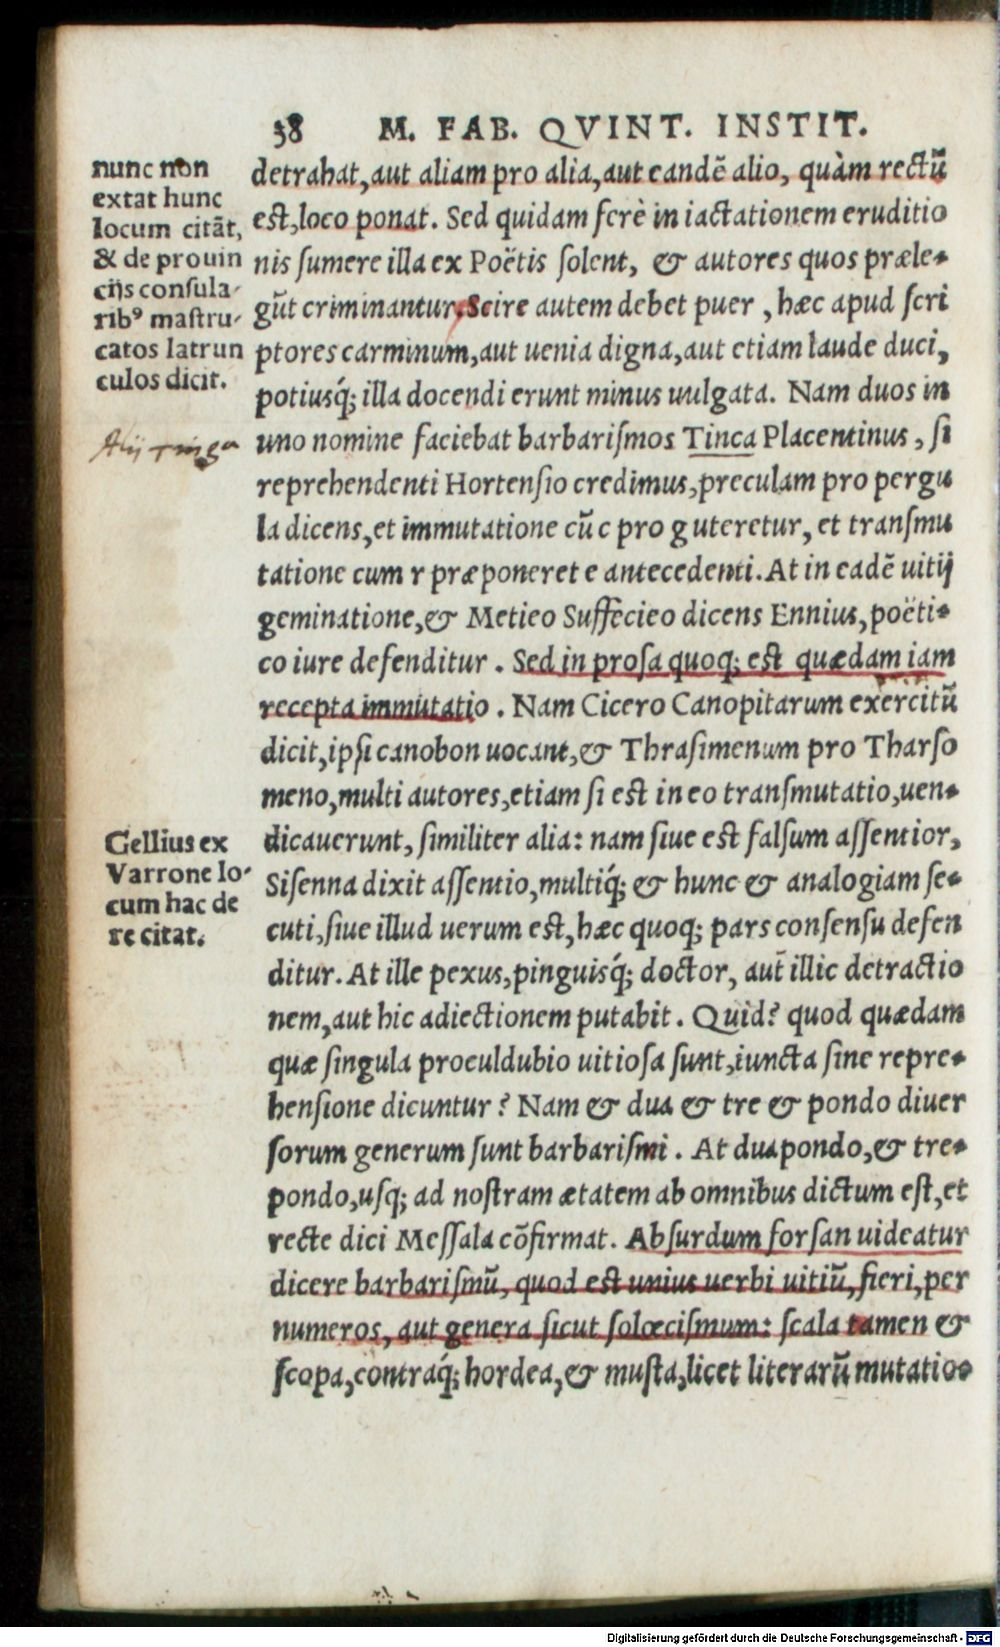 38 M. FAB. QVINT. INSTIT.
nunc non
extat hunc
locum citāt,
& de prouin
cijs consula-
ribꝰ mastru-
catos latrun
culos dicit.
Alij Tinga
detrahat, aut aliam pro alia, aut eandē alio, quàm rectū
est, loco ponat. Sed quidam ferè in iactationem eruditio
nis sumere illa ex Poëtis solent, & autores quos præle-
gūt criminantur. Scire autem debet puer, hæc apud scri
ptores carminum, aut uenia digna, aut etiam laude duci,
potiusq́; illa docendi erunt minus uulgata. Nam duos in
uno nomine faciebat barbarismos Tinca Placentinus, si
reprehendenti Hortensio credimus, preculam pro pergu
la dicens, et immutatione cū c pro g uteretur, et transmu
tatione cum r præponeret e antecedenti. At in eadē uitij
geminatione, & Metieo Suffecieo dicens Ennius, poëti-
co iure defenditur. Sed in prosa quoq; est quædam iam
recepta immutatio. Nam Cicero Canopitarum exercitū
dicit, ipsi canobon uocant, & Thrasimenum pro Tharso
meno, multi autores, etiam si est in eo transmutatio, uen-
dicauerunt, similiter alia: nam siue est falsum assentior,
Sisenna dixit assentio, multiq́; & hunc & analogiam se-
cuti, siue illud uerum est, hæc quoq; pars consensu defen
ditur. At ille pexus, pinguisq́; doctor, aut illic detractio
nem, aut hic adiectionem putabit. Quid? quod quædam
quæ singula proculdubio uitiosa sunt, iuncta sine repre-
hensione dicuntur? Nam & dua & tre & pondo diuer
sorum generum sunt barbarismi. At duapondo, & tre-
pondo, usq; ad nostram ætatem ab omnibus dictum est, et
recte dici Messala cōfirmat. Absurdum forsan uideatur
dicere barbarismū, quod est unius uerbi uitiū, fieri, per
numeros, aut genera sicut solœcismum: scala tamen &
scopa, contraq́; hordea, & musta, licet literarū mutatio-
Gellius ex
Varrone lo-
cum hac de
re citat.
Digitalisierung gefördert durch die Deutsche Forschungsgemeinschaft - DFG